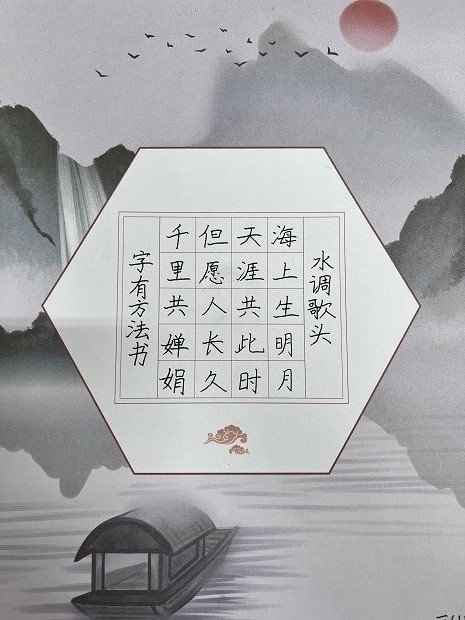 水调歌头
海上生明月
天涯共此时
但愿人长久
千里共婵娟
字有方法书